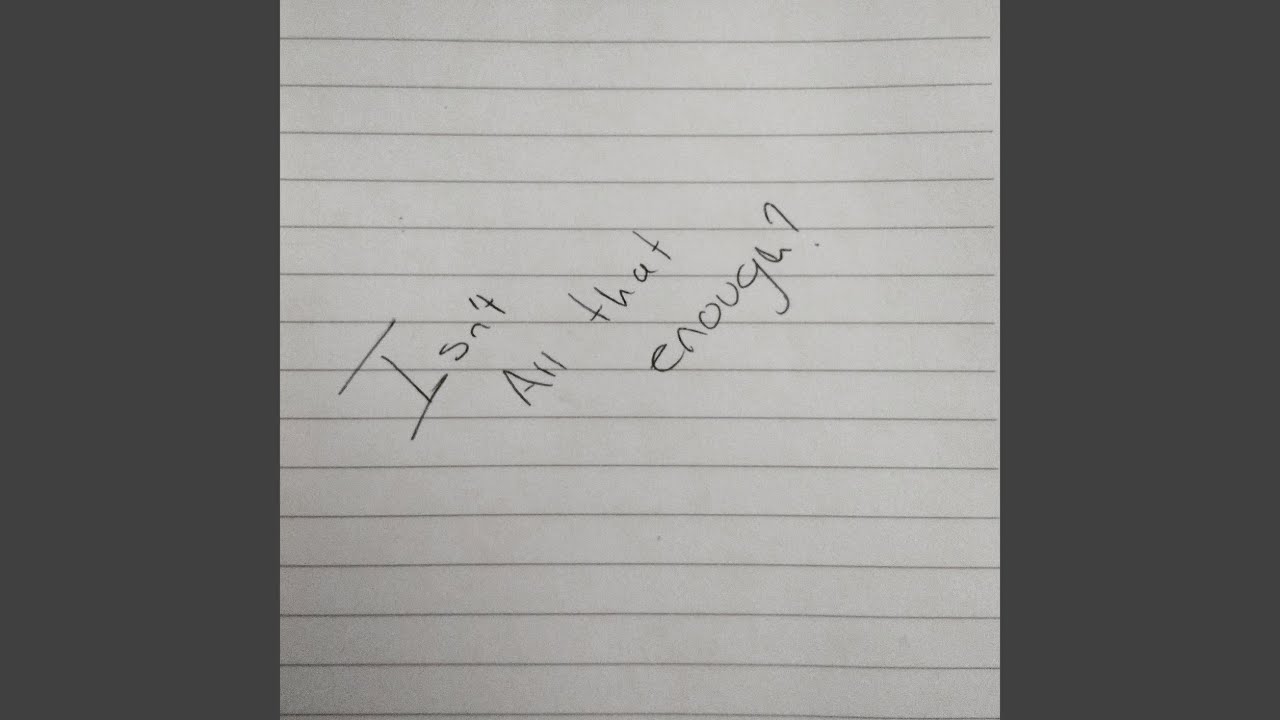 Isn't
All that
enough?